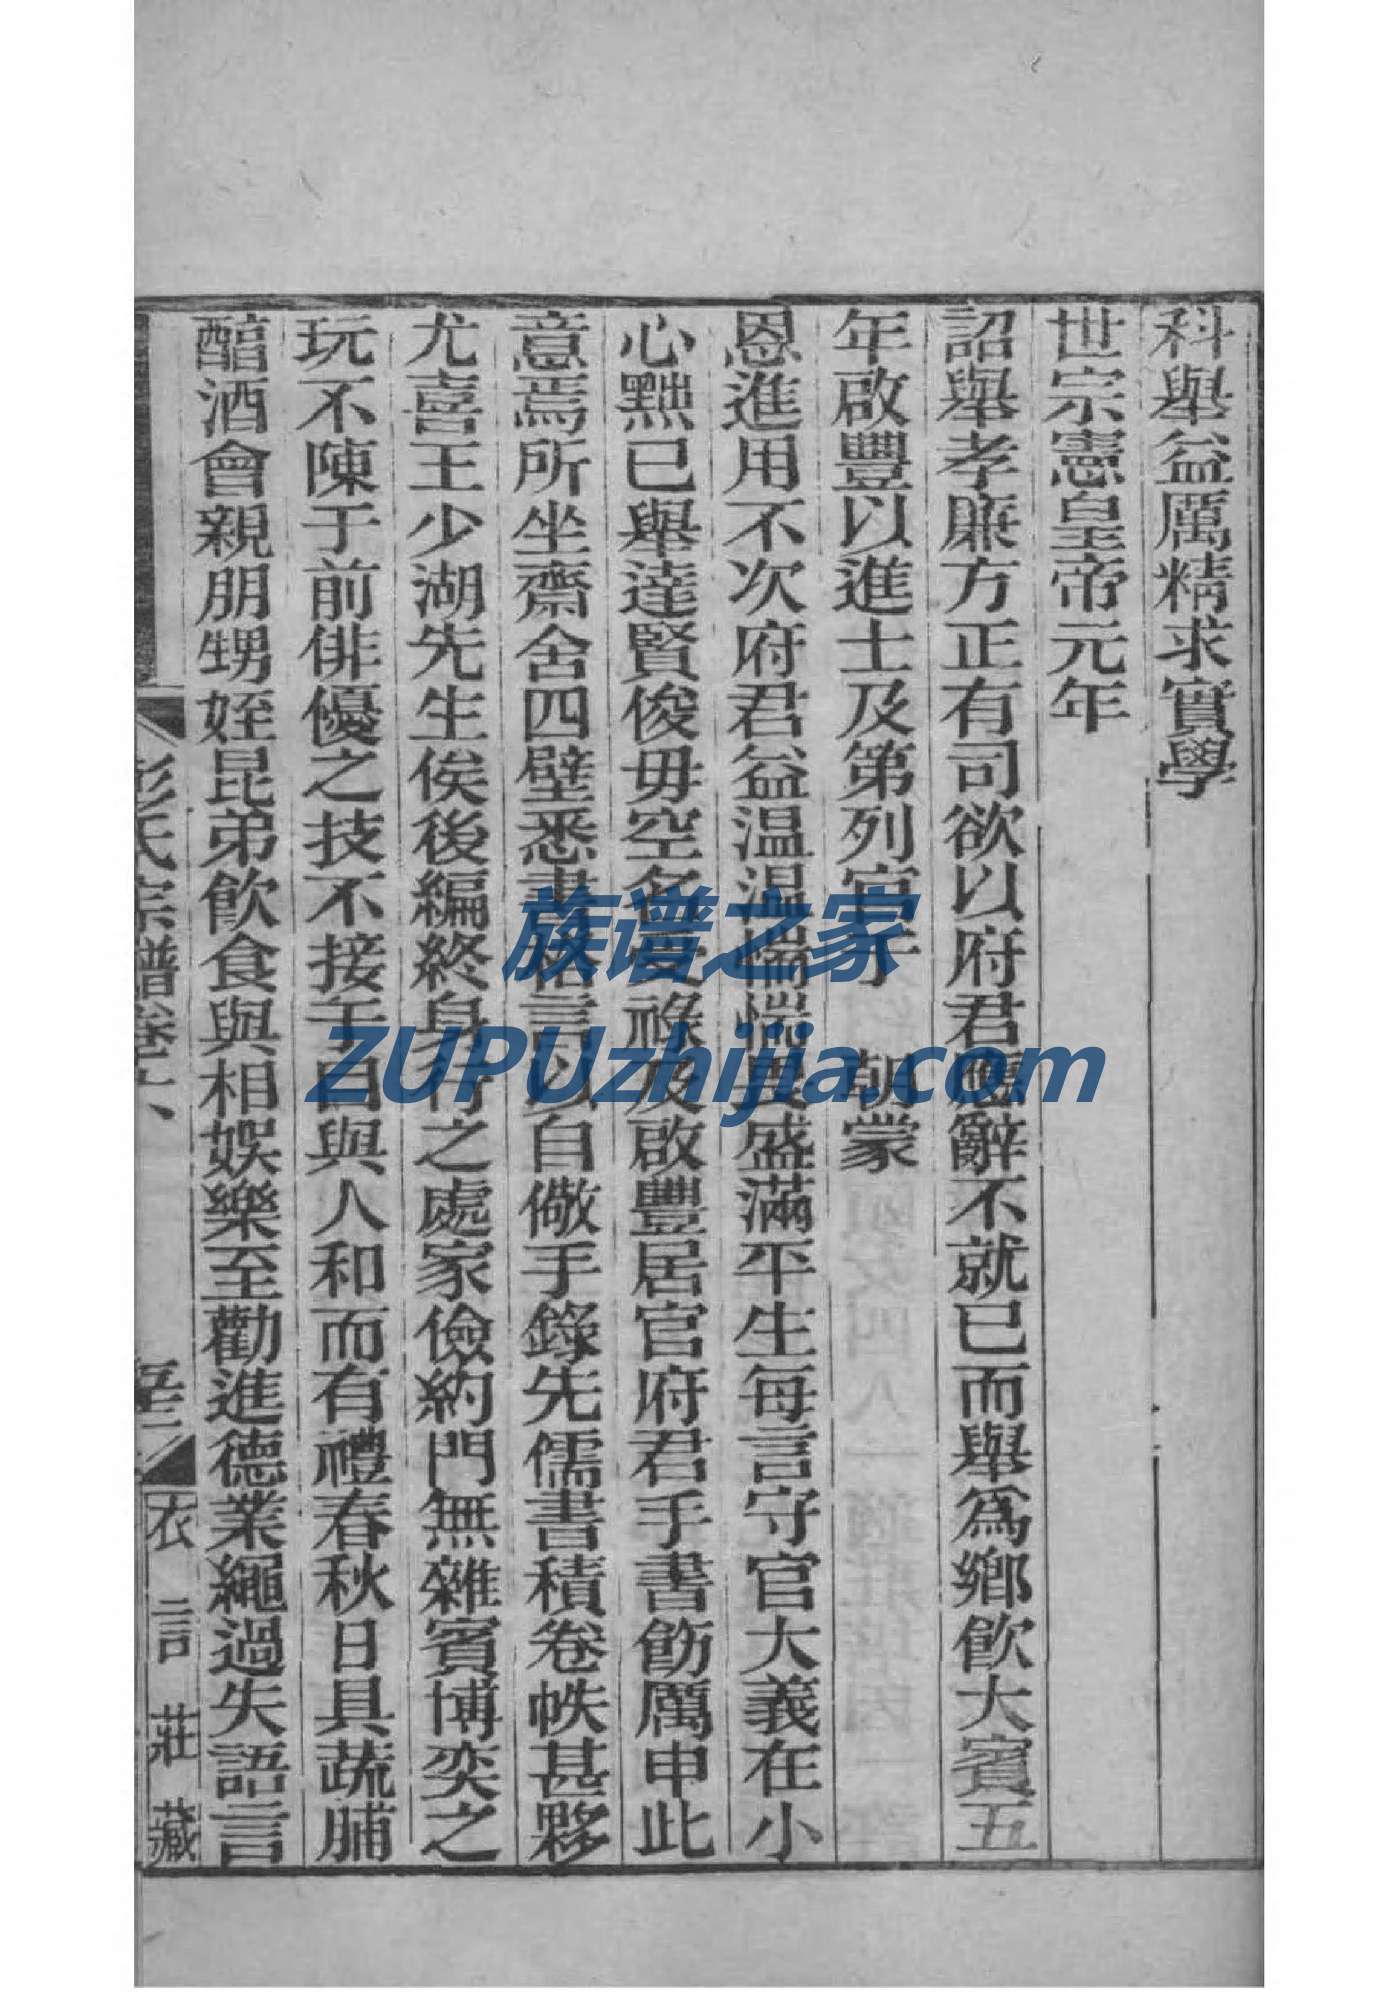 科舉益厲精求實學
世宗憲皇帝元年
詔舉孝廉方正有司欲以府君應辭不就已而舉爲鄉飲大賓五
年啟豐以進士及第列官于 朝蒙
恩進用不次府君益温温惴惴畏盛滿平生每言守官大義在小
心黜己舉達賢俊毋空名受祿及啟豐居官府君手書飭厲申此
意焉所坐齋舍四壁悉書格言以自儆手錄先儒書積卷帙甚夥
尤喜王少湖先生俟後編終身行之處家儉約門無雜賓博奕之
玩不陳于前俳優之技不接于目與人和而有禮春秋日具蔬脯
醕酒會親朋甥姪昆弟飲食與相娛樂至勸進德業繩過失語言
彭氏宗譜卷十 衣言莊藏
族谱之家
ZUPUzhijia.com